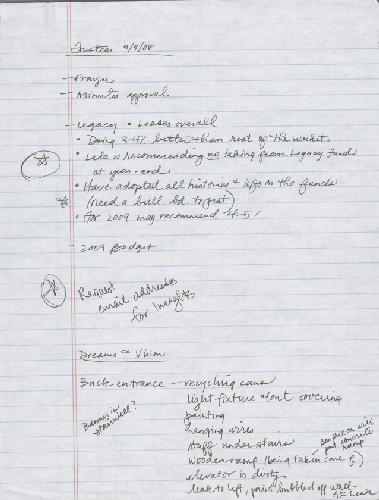 Trustees 9/9/08
- Prayer
- Minutes approval
- Legacy • Losses overall
• Doing 3-4% better than rest of the market
• Leta is recommending no taking from Legacy Fund
at year-end
• Have adopted all histories & gifts in the funds
(need a bull. bd. to post)
• for 2009 may recommend 4-5%
- 2009 Budget
Request
email addresses
for
Dreams & Vision
Back entrance - recycling cans
light fixture w/out covering
painting
hanging wires
stuff under stairs
Banners in
stairwell?
wooden ramp (being taken care of)
will
put concrete
ramp
elevator is dusty
leak to left, paint bubbled off wall -